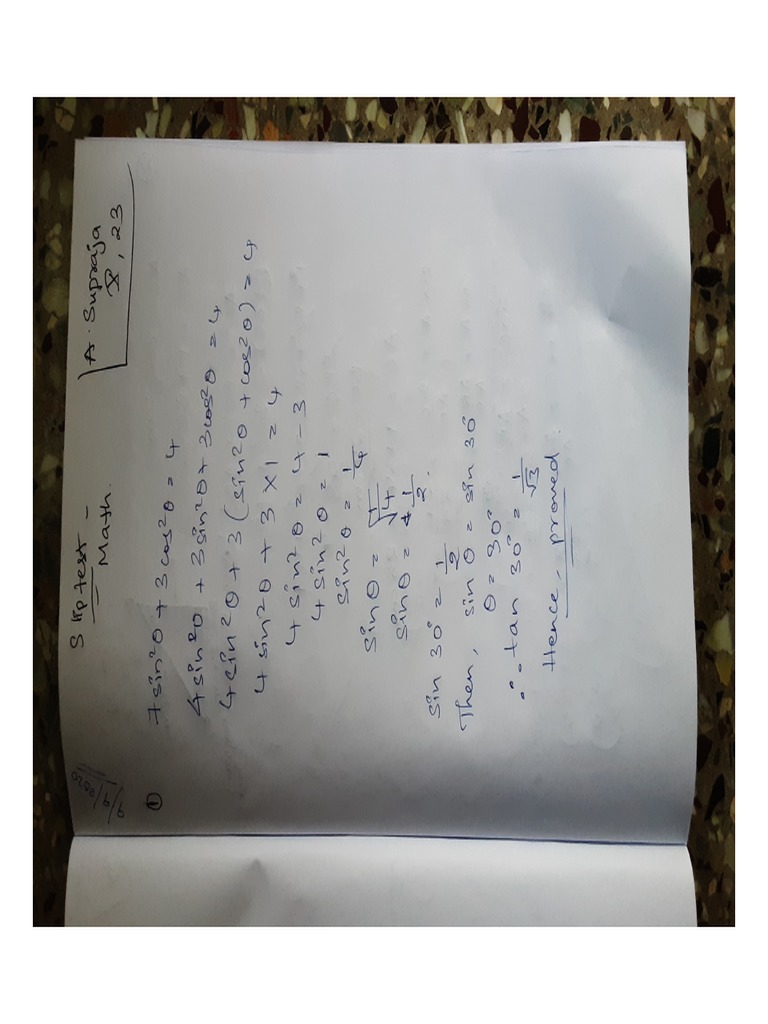 9/9/2020
Slip test -
Math.
A. Supraja
X, 23
① 7sin²θ + 3cos²θ = 4
4sin²θ + 3sin²θ + 3cos²θ = 4
4sin²θ + 3(sin²θ + cos²θ) = 4
4sin²θ + 3 × 1 = 4
4sin²θ = 4 - 3
4sin²θ = 1
sin²θ = 1/4
sinθ = √1/4
sinθ = 1/2.
sin 30° = 1/2
Then, sin θ = sin 30°
θ = 30°
∴ tan 30° = 1/√3
Hence, proved.